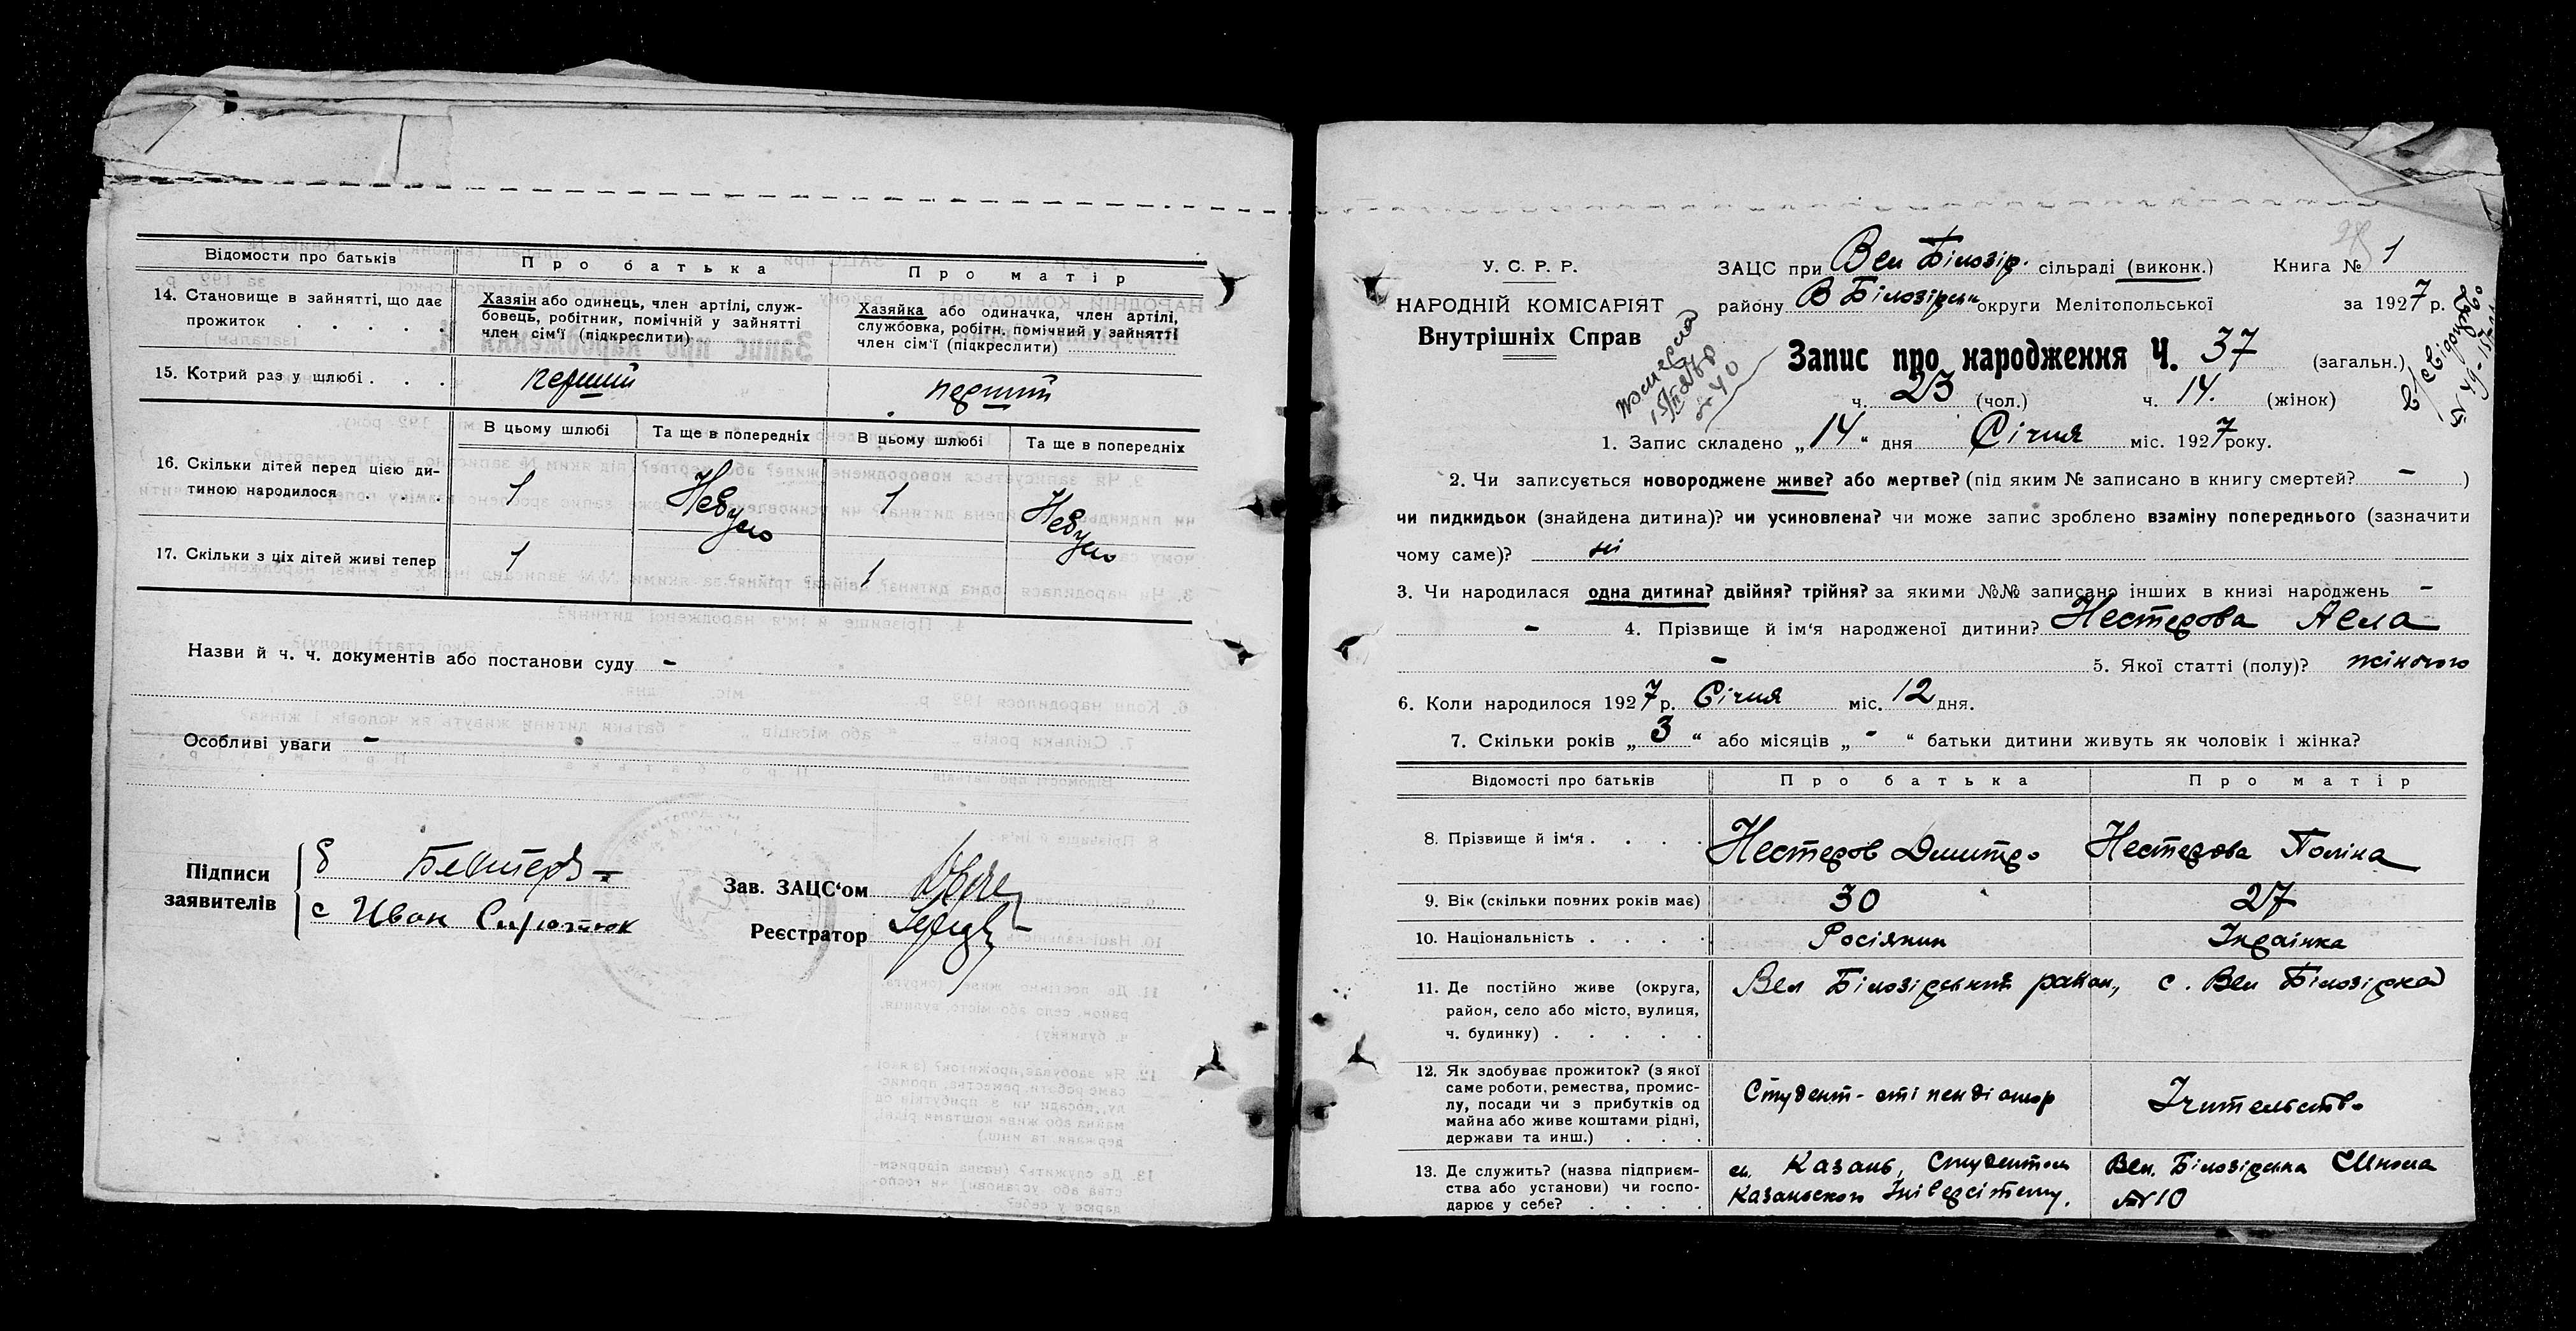 Відомости про батьків
Про батька
Про матір
14. Становище в зайнятті, що дає
прожиток . . . . .
Хазяїн або одинець, член артілі, служ-
бовець, робітник, помічній у зайнятті
член сім'ї (підкреслити)
Хазяйка або одиначка, член артілі,
службовка, робітн. помічний у зайнятті
член сім'ї (підкреслити)
15. Котрий раз у шлюбі . . .
перший
перший
В цьому шлюбі
Та ще в попередніх
В цьому шлюбі
Та ще в попередніх
16. Скільки дітей перед цією ди-
тиною народилося . . . .
1
Небуло
1
Небуло
17. Скільки з ціх дітей живі тепер
1
1
Назви й ч. ч. документів або постанови суду -
Особливі уваги -
Підписи
заявителів
с Иван
Зав. ЗАЦС'ом
Реєстратор
У. С. Р. Р.
НАРОДНІЙ КОМІСАРІЯТ
Внутрішніх Справ
ЗАЦС при Вел Білозір. сільраді (виконк.)
Книга № 1
району В Білозірськ округи Мелітопольської
за 1927 р.
Запис про народження Ч. 37 (загальн.)
ч. 23 (чол.) ч. 14. (жінок)
1. Запис складено „14“ дня Січня міс. 1927 року.
2. Чи записується новороджене живе? або мертве? (під яким № записано в книгу смертей? - )
чи пидкидьок (знайдена дитина)? чи усиновлена? чи може запис зроблено взаміну попереднього (зазначити
чому саме)? ні
3. Чи народилася одна дитина? двійня? трійня? за якими №№ записано інших в книзі народжень -
- 4. Прізвище й ім'я народженої дитини? Нестерова
- 5. Якої статті (полу)? жіночого
6. Коли народилося 1927 р. Січня міс. 12 дня.
7. Скільки років „3“ або місяців „-“ батьки дитини живуть як чоловік і жінка?
Відомості про батьків
Про батька
Про матір
8. Прізвище й ім'я . . . .
Нестеров Дмитро
Нестерова Поліна
9. Вік (скільки повних років має)
30
27
10. Національність . . . .
Росіянин
Українка
11. Де постійно живе (округа,
район, село або місто, вулиця,
ч. будинку) . . . . .
Вел Білозірський район, с. Вел Білозірка
12. Як здобуває прожиток? (з якої
саме роботи, ремества, промис-
лу, посади чи з прибутків од
майна або живе коштами рідні,
держави та инш.) . . .
Студент-стіпендіатор
Учительство
13. Де служить? (назва підприєм-
ства або установи) чи госпо-
дарює у себе? . . . .
м. Казань, Студентом
Казанського Університету.
Вел. Білозірська Школа
№10